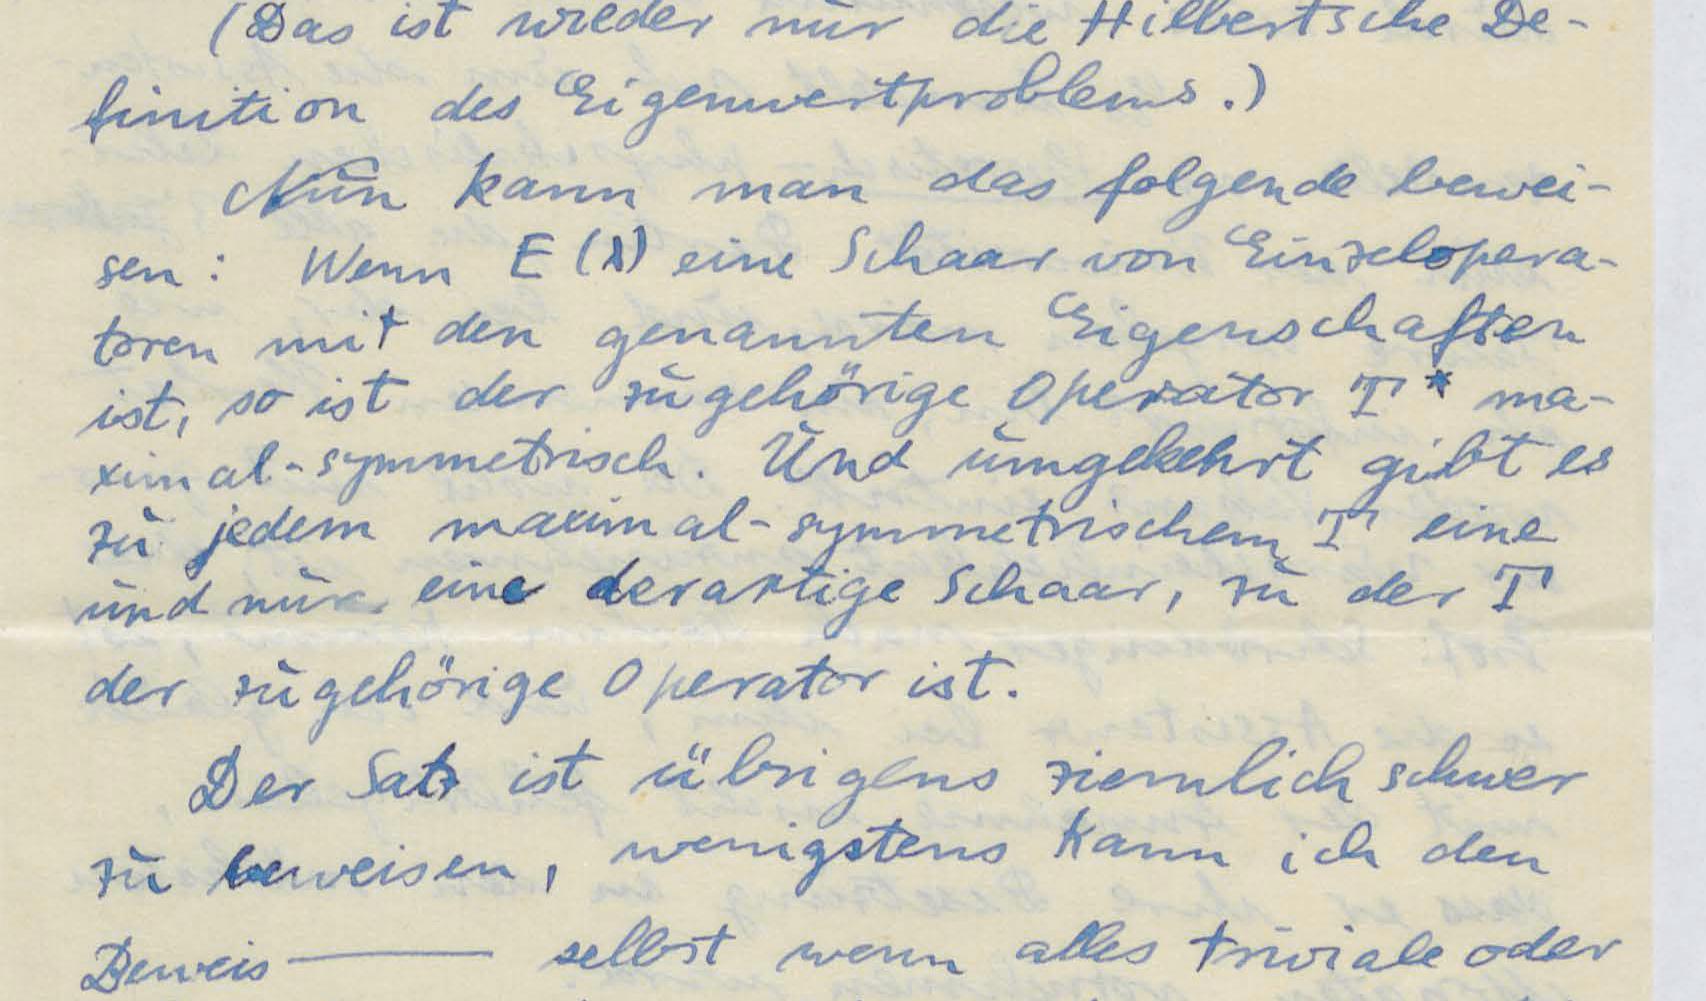 (Das ist wieder nur die Hilbertsche De-
finition des Eigenwertproblems.)
Nun kann man das folgende bewei-
sen: Wenn E(λ) eine Schaar von Einzelopera-
toren mit den genannten Eigenschaften
ist, so ist der zugehörige Operator T* ma-
ximal-symmetrisch. Und umgekehrt gibt es
zu jedem maximal-symmetrischem T eine
und nur eine derartige Schaar, zu der T
der zugehörige Operator ist.
Der Satz ist übrigens ziemlich schwer
zu beweisen, wenigstens kann ich den
Beweis — selbst wenn alles triviale oder